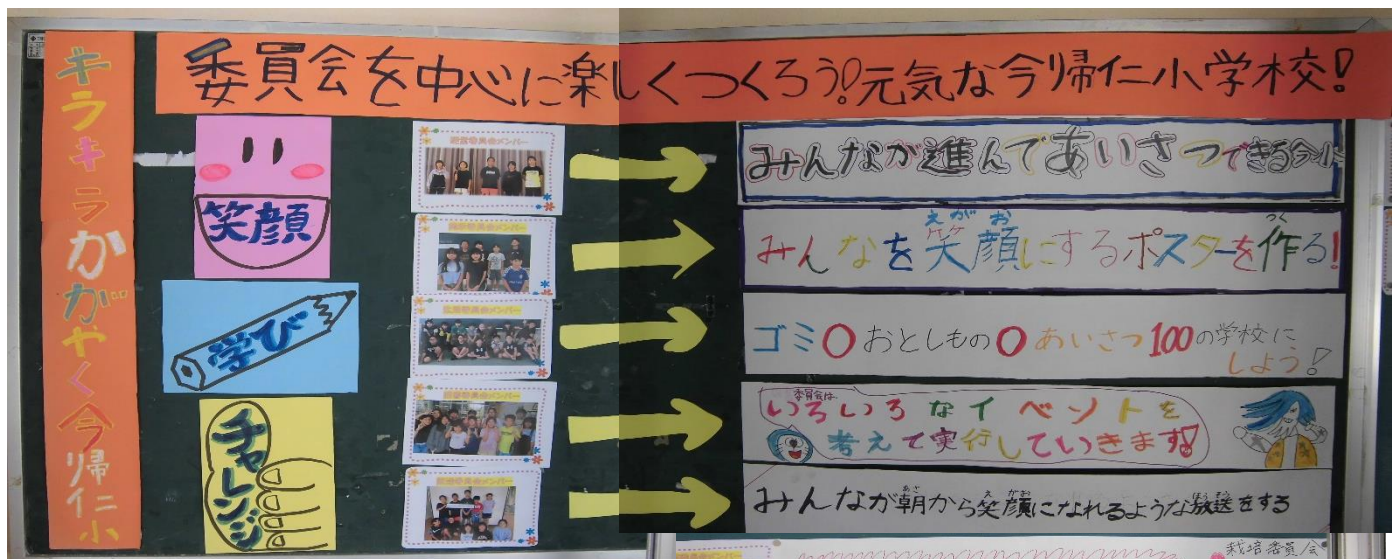 キラキラかがやく今帰仁小
委員会を中心に楽しくつくろう!元気な今帰仁小学校!
笑顔
学び
チャレンジ
みんなが進んであいさつできる今小
えがお
みんなを笑顔にするポスターを作る!
つく
ゴミ0おとしもの0あいさつ100の学校に
しよう!
委員会は
いろいろなイベントを
考えて実行していきます!
みんなが朝から笑顔になれるような放送をする
あさ
えがお
ほうそう
栽培委員会